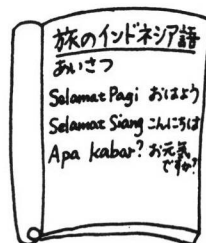 旅のインドネシア語
あいさつ
Selamat Pagi おはよう
Selamat Siang こんにちは
Apa kabar? お元気
ですか?